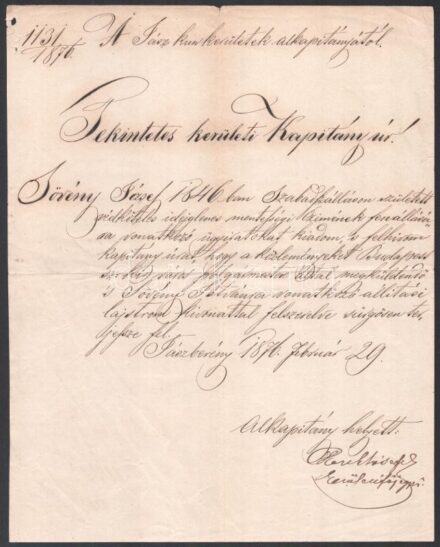 1131
1876.
A Jász kun kerületek alkapitányjától.
Tekintetes kerületi Kapitány úr!
Sövény József 1846.ban Szabadszálláson született
védköteles ideiglenes mentességi
vonatkozó ügyiratokat kiadom, s felhivom
Kapitány urat, hogy a közleményeket Budapest
város polgármestere által megküldendő
s Sövény Istvánra vonatkozó állítási
lajstrom kivonattal felszerelve sürgősen ter-
jessze fel.
Jászberény 1876. február 29.
Alkapitány helyett: